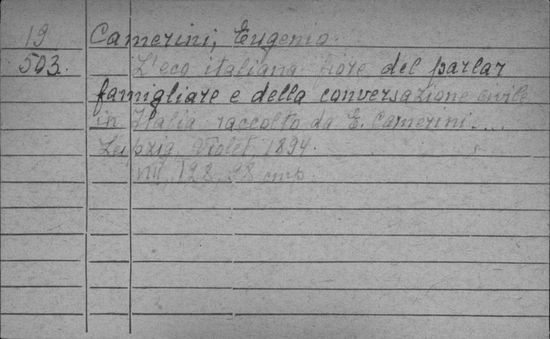 19 Camerini, Eugenio.
503. L'eco italiano fiore del parlar
famigliare e della conversazione civile
in Italia raccolto da E. Camerini....
Leipzig, Violet, 1894.
VIII, 128, 98 стр.